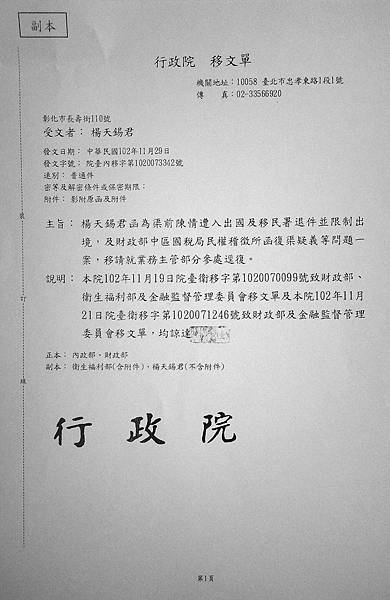 副本
行政院 移文單
機關地址：10058 臺北市忠孝東路1段1號
傳 真：02-33566920
彰化市長壽街110號
受文者：楊天錫君
發文日期：中華民國102年11月29日
發文字號：院臺內移字第1020073342號
速別：普通件
密等及解密條件或保密期限：
附件：影附原函及附件
主旨：楊天錫君函為渠前陳情遭入出國及移民署退件並限制出
境，及財政部中區國稅局民權稽徵所函復渠疑義等問題一
案，移請就業務主管部分參處逕復。
說明：本院102年11月19日院臺衛移字第1020070099號致財政部、
衛生福利部及金融監督管理委員會移文單及本院102年11月
21日院臺衛移字第1020071246號致財政部及金融監督管理
委員會移文單，均諒達
正本：內政部、財政部
副本：衛生福利部(含附件)、楊天錫君(不含附件)
裝
訂
線
行政院
第1頁